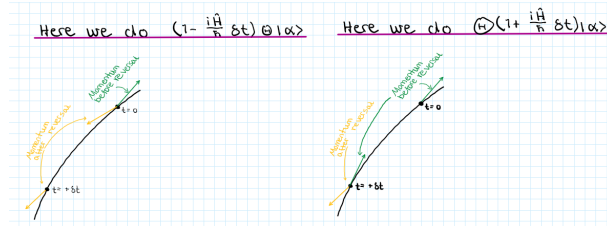 Here we do (1- iĤ/ħ δt) Θ|α>
Momentum
before reversal
t=0
Momentum
after reversal
t= + δt
Here we do Θ(1+ iĤ/ħ δt)|α>
Momentum
before reversal
t=0
Momentum
after reversal
t= + δt